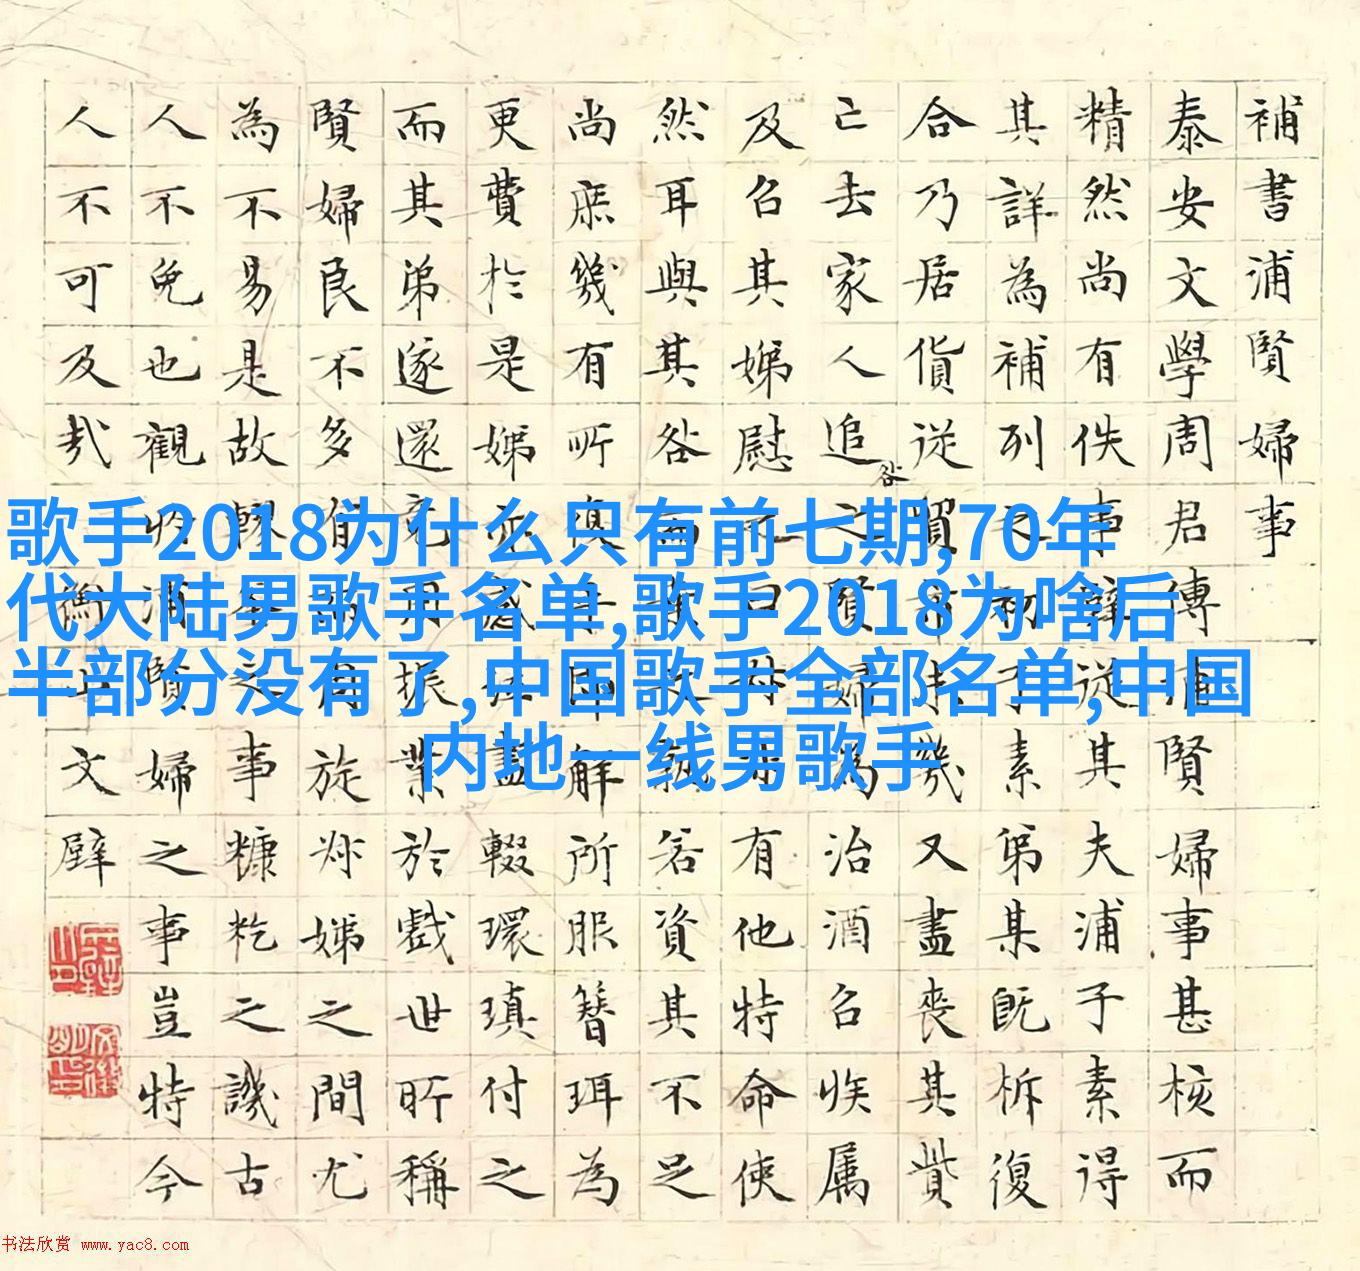 補書浦賢婦事
泰安文學周君傳浦賢婦事甚核而
精然尚有佚事璧從其夫浦子素得
其詳為補列之初子素弟某既柝復
合乃居貨從賈幾又盡喪其貲
已去家人追之賢婦為治酒召族属
咎
及召其娣慰之曰有他特命侠
然耳與其咎若資其不足
尚庶幾有所慎即解所服簪珥為
更費於是娣亦感盡輟環瑱付之
而其弟遂還克用振業於戲世所稱
賢婦良不多有旋姒娣之間尤
為不易是故轑之事糠籺之譏古
人不免也觀於浦賢婦之事豈特今
人不可及哉文璧
歌手2018为什么只有前七期,70年
代大陆男歌手名单,歌手2018为啥后
半部分没有了,中国歌手全部名单,中国
内地一线男歌手
书法欣赏 www.yac8.com